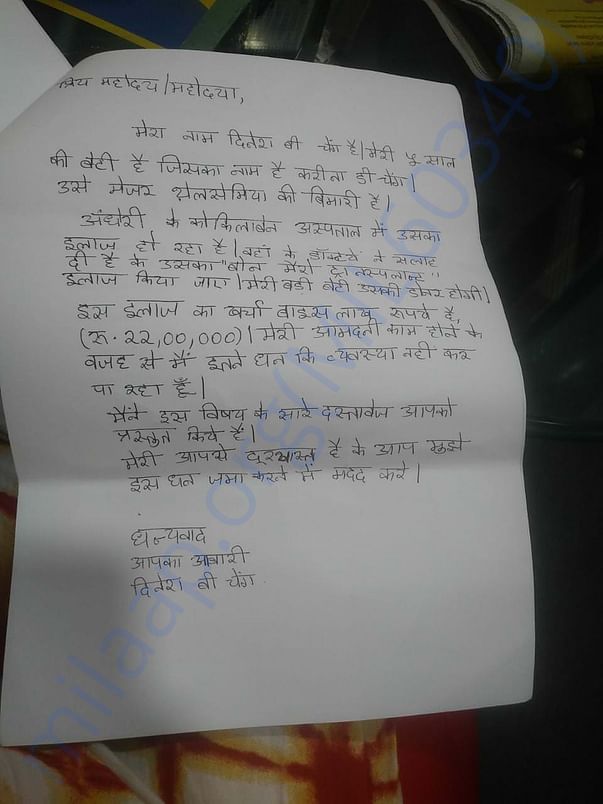 प्रिय महोदय/महोदया,
मेरा नाम दिनेश बी चेंग है। मेरी 5 साल
की बेटी है जिसका नाम है करीना डी चेंग।
उसे मेजर थेलसेमिया की बिमारी है।
अंधेरी के कोकिलाबेन अस्पताल में उसका
इलाज हो रहा है। वहाँ के डॉक्टर्स ने सलाह
दी है के उसका "बोन मैरो ट्रान्सप्लान्ट"
इलाज किया जाए। मेरी बड़ी बेटी उसकी डोनर होगी।
इस इलाज का खर्चा बाइस लाख रूपये है,
(रु. २२,00,000)। मेरी आमदनी काम होने के
वजह से मैं इतने धन कि व्यवस्था नही कर
पा रहा हूँ।
मैंने इस विषय के सारे दस्तावेज आपको
प्रस्तुत किये हैं।
मेरी आपसे दरखास्त है के आप मुझे
इस धन जमा करने में मदद करे।
धन्यवाद
आपका आभारी
दिनेश बी चेंग.
milaap.org